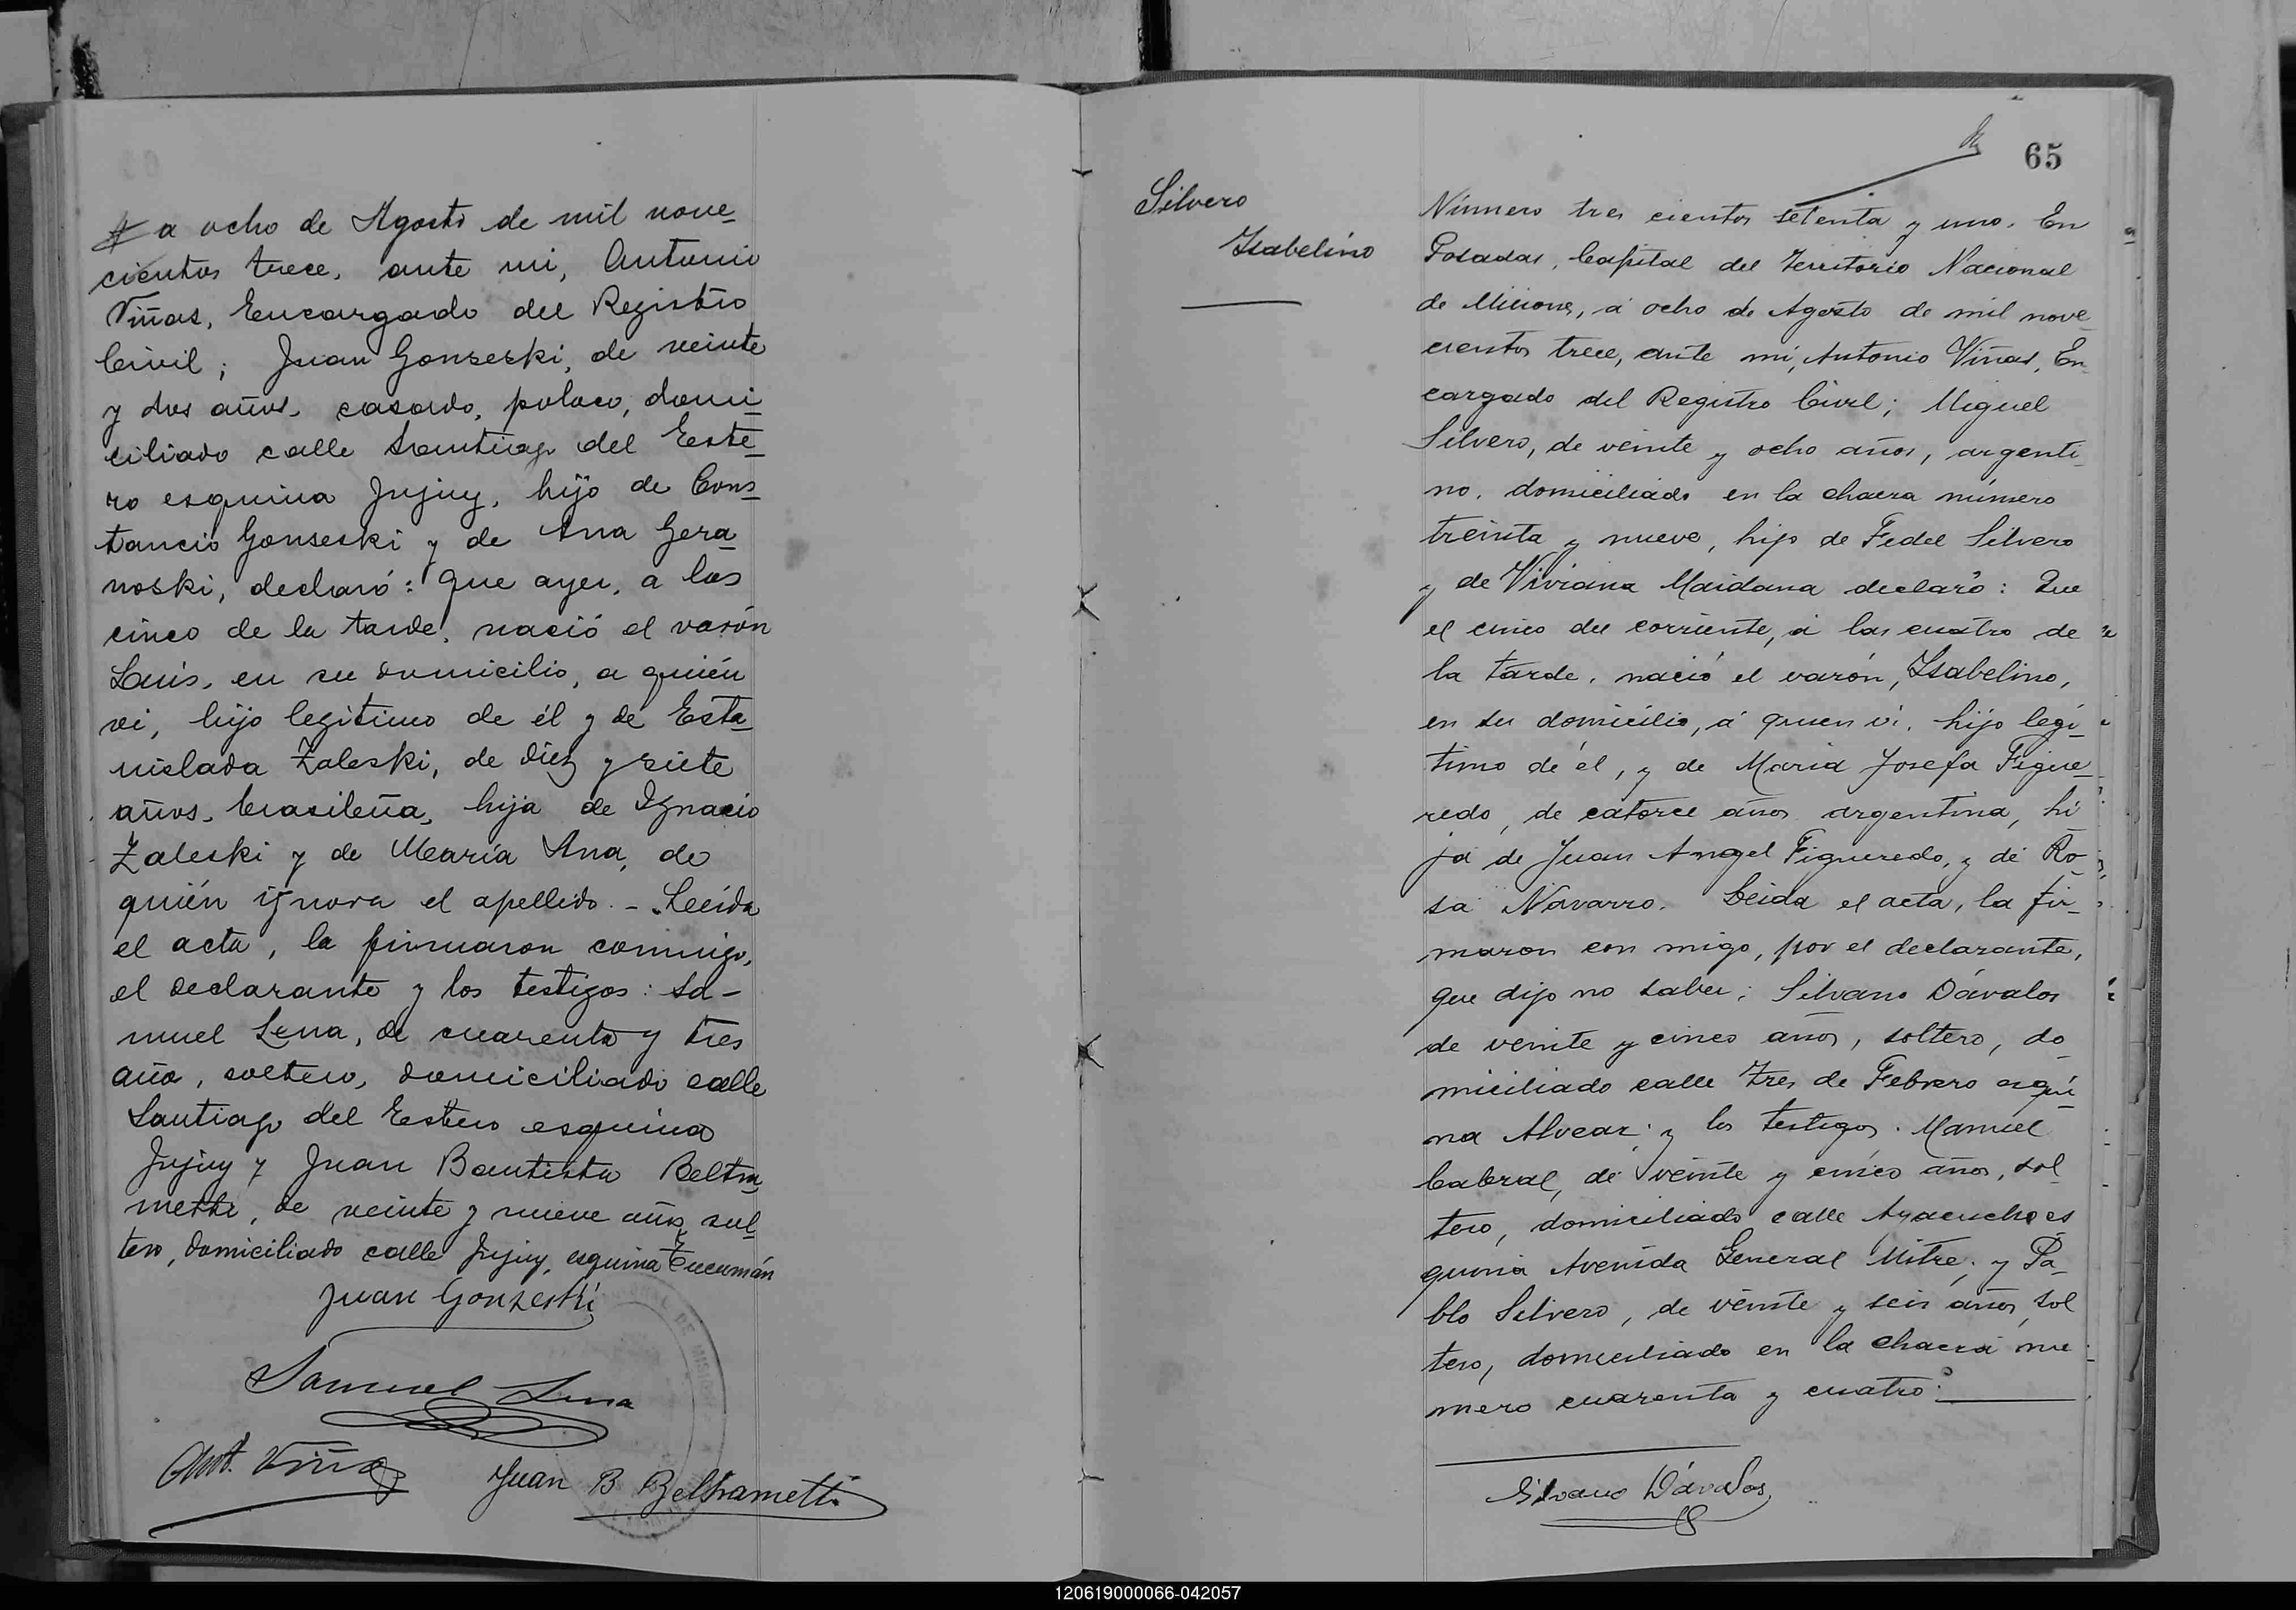 a ocho de Agosto de mil nove_
cientos trece, ante mi, Antonio
Viñas, Encargado del Registro
Civil; Juan Gonseski, de veinte
y dos años, casado, polaco, domi_
ciliado calle Santiago del Este_
ro esquina Jujuy, hijo de Cons_
tancio Gonseski y de Ana Gera_
noski, declaró: que ayer, a las
cinco de la tarde, nació el varón
Luis, en su domicilio, a quién
vi, hijo legitimo de él y de Esta_
nislada Zaleski, de diez y siete
años, brasileña, hija de Ignacio
Zaleski y de María Ana, de
quién ignora el apellido. - Leeida
el acta, la firmaron conmigo,
el declarante y los testigos: Sa-
muel Lena, de cuarenta y tres
año, soltero, domiciliado calle
Santiago del Estero esquina
Jujuy y Juan Bautista Beltra_
metti, de veinte y nueve años, sol_
tero, domiciliado calle Jujuy, esquina Tucumán
Juan Gonzeski
Samuel Lena
Ant. Viñas
Juan B Beltrametti
DE MISION
65
Silvero
Isabelino
Número tres cientos setenta y uno. En
Posadas, Capital del Territorio Nacional
de Misiones, á ocho de Agosto de mil nove_
cientos trece, ante mi, Antonio Viñas, En_
cargado del Registro Civil; Miguel
Silvero, de veinte y ocho años, argenti_
no, domiciliado en la chacra número
treinta y nueve, hijo de Fedel Silvero
y de Viviana Maidana declaró: Que
el cinco del corriente, á las cuatro de
la tarde, nació el varón, Isabelino,
en su domicilio, á quien vi, hijo legi_
timo de él, y de Maria Josefa Figue_
redo, de catorce años argentina, hi_
ja de Juan Angel Figueredo, y de Ro_
sa Navarro. Leida el acta, la fir_
maron con migo, por el declarante,
que dijo no saber; Silvano Dávalos
de veinte y cinco años, soltero, do_
miciliado calle Tres de Febrero esqui_
na Alvear; y los testigos. Manuel
Cabral, de veinte y cinco años, sol_
tero, domiciliado calle Ayacucho es
quina Avenida General Mitre; y Pa_
blo Silvero, de veinte y seis años, sol
tero, domiciliado en la chacra nu_
mero cuarenta y cuatro.
Silvano Dávalos
120619000066-042057